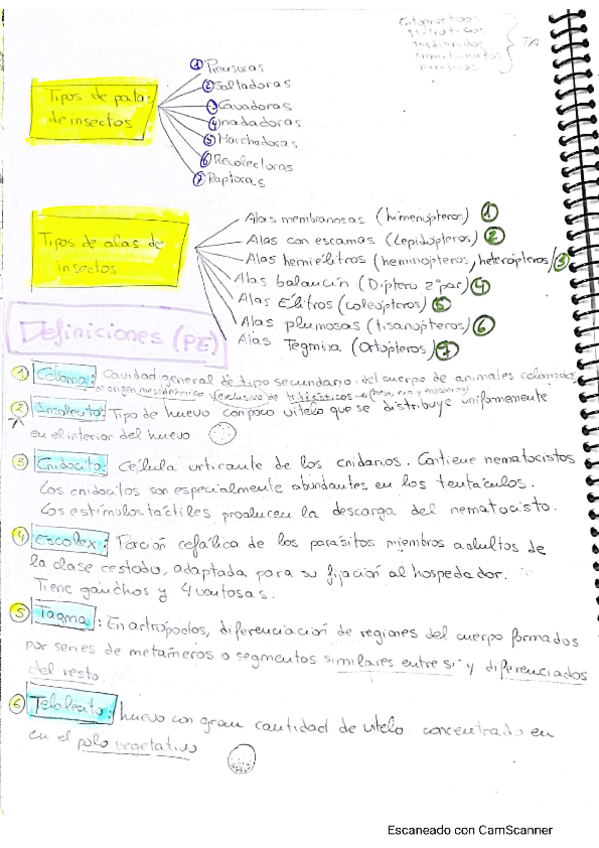 TA
① Prensoras
② Saltadoras
Tipos de pata
de insectos
③ Cavadoras
④ nadadoras
⑤ Marchadoras
⑥ Recolectoras
⑦ Raptoras
Alas membranosas (himenópteros) ①
Tipos de alas de
insectos
Alas con escamas (Lepidópteros) ②
Alas hemiélitros (heminópteros, heterópteros) ③
Alas balancín (Díptero 2º par) ④
Alas Élitros (coleópteros) ⑤
Alas plumosas (tisanópteros) ⑥
Alas Tegmina (Ortópteros) ⑦
Definiciones (PE)
① Celoma: Cavidad general de tipo secundario del cuerpo de animales celomados,
② Isolecito: Tipo de huevo con poco vitelo que se distribuye uniformemente
en el interior del huevo
③ Cnidocito: Célula urticante de los cnidarios. Contiene nematocistos
Los cnidocitos son especialmente abundantes en los tentáculos.
Los estímulos táctiles producen la descarga del nematocisto.
④ Escolex: Porción cefálica de los parásitos miembros adultos de
la clase cestodo, adaptada para su fijación al hospedador.
Tiene ganchos y 4 ventosas.
⑤ Tagma: En artrópodos, diferenciación de regiones del cuerpo formados
por series de metámeros o segmentos similares entre sí y diferenciados
del resto.
⑥ Telolecito: huevo con gran cantidad de vitelo concentrado en
en el polo vegetativo
Escaneado con CamScanner